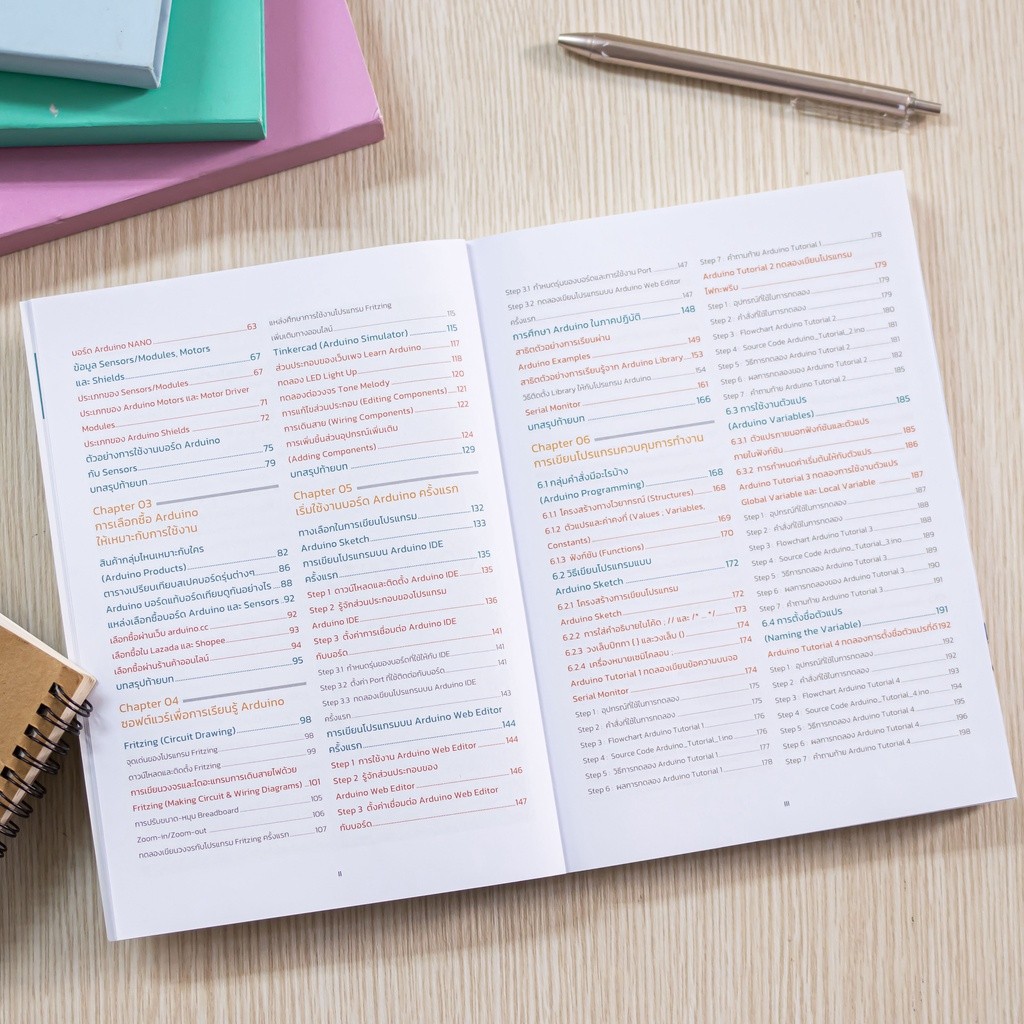 บอร์ด Arduino NANO 63
ข้อมูล Sensors/Modules, Motors
และ Shields 67
ประเภทของ Sensors/Modules 67
ประเภทของ Arduino Motors และ Motor Driver
Modules 71
ประเภทของ Arduino Shields 72
ตัวอย่างการใช้งานบอร์ด Arduino
กับ Sensors 75
บทสรุปท้ายบท 79
Chapter 03
การเลือกซื้อ Arduino
ให้เหมาะกับการใช้งาน
สินค้ากลุ่มไหนเหมาะกับใคร
(Arduino Products) 82
ตารางเปรียบเทียบสเปคบอร์ดรุ่นต่างๆ 86
Arduino บอร์ดแท้บอร์ดเทียบดูกันอย่างไร 88
แหล่งเลือกซื้อบอร์ด Arduino และ Sensors 92
เลือกซื้อผ่านเว็บ arduino.cc 92
เลือกซื้อใน Lazada และ Shopee 93
เลือกซื้อผ่านร้านค้าออนไลน์ 94
บทสรุปท้ายบท 95
Chapter 04
ซอฟต์แวร์เพื่อการเรียนรู้ Arduino
Fritzing (Circuit Drawing) 98
จุดเด่นของโปรแกรม Fritzing 98
ดาวน์โหลดและติดตั้ง Fritzing 99
การเขียนวงจรและไดอะแกรมการเดินสายไฟด้วย
Fritzing (Making Circuit & Wiring Diagrams) 101
การปรับขนาด-หมุน Breadboard 105
Zoom-in/Zoom-out 106
ทดลองเขียนวงจรกับโปรแกรม Fritzing ครั้งแรก 107
แหล่งศึกษาการใช้งานโปรแกรม Fritzing
เพิ่มเติมทางออนไลน์ 115
Tinkercad (Arduino Simulator) 115
ส่วนประกอบของเว็บเพจ Learn Arduino 117
ทดลอง LED Light Up 118
ทดลองต่อวงจร Tone Melody 120
การแก้ไขส่วนประกอบ (Editing Components) 121
การเดินสาย (Wiring Components) 122
การเพิ่มชิ้นส่วนอุปกรณ์เพิ่มเติม
(Adding Components) 124
บทสรุปท้ายบท 129
Chapter 05
เริ่มใช้งานบอร์ด Arduino ครั้งแรก
ทางเลือกในการเขียนโปรแกรม 132
Arduino Sketch 133
การเขียนโปรแกรมบน Arduino IDE
ครั้งแรก 135
Step 1 ดาวน์โหลดและติดตั้ง Arduino IDE 135
Step 2 รู้จักส่วนประกอบของโปรแกรม
Arduino IDE 136
Step 3 ตั้งค่าการเชื่อมต่อ Arduino IDE
กับบอร์ด 141
Step 3.1 กำหนดรุ่นของบอร์ดที่ใช้ให้กับ IDE 141
Step 3.2 ตั้งค่า Port ที่ใช้ติดต่อกับบอร์ด 141
Step 3.3 ทดลองเขียนโปรแกรมบน Arduino IDE
ครั้งแรก 143
การเขียนโปรแกรมบน Arduino Web Editor
ครั้งแรก 144
Step 1 การใช้งาน Arduino Web Editor 144
Step 2 รู้จักส่วนประกอบของ
Arduino Web Editor 146
Step 3 ตั้งค่าเชื่อมต่อ Arduino Web Editor
กับบอร์ด 147
II
Step 3.1 กำหนดรุ่นของบอร์ดและการใช้งาน Port 147
Step 3.2 ทดลองเขียนโปรแกรมบน Arduino Web Editor
ครั้งแรก 147
การศึกษา Arduino ในภาคปฏิบัติ 148
สาธิตตัวอย่างการเรียนผ่าน
Arduino Examples 149
สาธิตตัวอย่างการเรียนรู้จาก Arduino Library 153
วิธีติดตั้ง Library ให้กับโปรแกรม Arduino 154
Serial Monitor 161
บทสรุปท้ายบท 166
Chapter 06
การเขียนโปรแกรมควบคุมการทำงาน
6.1 กลุ่มคำสั่งมีอะไรบ้าง
(Arduino Programming) 168
6.1.1 โครงสร้างทางไวยากรณ์ (Structures) 168
6.1.2 ตัวแปรและค่าคงที่ (Values , Variables,
Constants) 169
6.1.3 ฟังก์ชัน (Functions) 170
6.2 วิธีเขียนโปรแกรมแบบ
Arduino Sketch 172
6.2.1 โครงสร้างการเขียนโปรแกรม
Arduino Sketch 172
6.2.2 การใส่คำอธิบายในโค้ด ; // และ /* ... */ 173
6.2.3 วงเล็บปีกกา { } และวงเล็บ () 174
6.2.4 เครื่องหมายเซมิโคลอน ; 174
Arduino Tutorial 1 ทดลองเขียนข้อความบนจอ
Serial Monitor 174
Step 1 : อุปกรณ์ที่ใช้ในการทดลอง 175
Step 2 : คำสั่งที่ใช้ในการทดลอง 175
Step 3 : Flowchart Arduino Tutorial 1 176
Step 4 : Source Code Arduino_Tutorial_1.ino 176
Step 5 : วิธีการทดลอง Arduino Tutorial 1 177
Step 6 : ผลการทดลอง Arduino Tutorial 1 178
Step 7 : คำถามท้าย Arduino Tutorial 1 178
Arduino Tutorial 2 ทดลองเขียนโปรแกรม
ไฟกะพริบ 179
Step 1 : อุปกรณ์ที่ใช้ในการทดลอง 179
Step 2 : คำสั่งที่ใช้ในการทดลอง 179
Step 3 : Flowchart Arduino Tutorial 2 180
Step 4 : Source Code Arduino_Tutorial_2.ino 181
Step 5 : วิธีการทดลอง Arduino Tutorial 2 181
Step 6 : ผลการทดลองของ Arduino Tutorial 2 182
Step 7 : คำถามท้าย Arduino Tutorial 2 185
6.3 การใช้งานตัวแปร
(Arduino Variables) 185
6.3.1 ตัวแปรภายนอกฟังก์ชันและตัวแปร
ภายในฟังก์ชัน 185
6.3.2 การกำหนดค่าเริ่มต้นให้กับตัวแปร 186
Arduino Tutorial 3 ทดลองการใช้งานตัวแปร
Global Variable และ Local Variable 187
Step 1 : อุปกรณ์ที่ใช้ในการทดลอง 187
Step 2 : คำสั่งที่ใช้ในการทดลอง 188
Step 3 : Flowchart Arduino Tutorial 3 188
Step 4 : Source Code Arduino_Tutorial_3.ino 189
Step 5 : วิธีการทดลอง Arduino Tutorial 3 189
Step 6 : ผลการทดลองของ Arduino Tutorial 3 190
Step 7 : คำถามท้าย Arduino Tutorial 3 191
6.4 การตั้งชื่อตัวแปร
(Naming the Variable) 191
Arduino Tutorial 4 ทดลองการตั้งชื่อตัวแปรที่ดี 192
Step 1 : อุปกรณ์ที่ใช้ในการทดลอง 192
Step 2 : คำสั่งที่ใช้ในการทดลอง 192
Step 3 : Flowchart Arduino Tutorial 4 193
Step 4 : Source Code Arduino_Tutorial_4.ino 194
Step 5 : วิธีการทดลอง Arduino Tutorial 4 195
Step 6 : ผลการทดลอง Arduino Tutorial 4 196
Step 7 : คำถามท้าย Arduino Tutorial 4 198
III